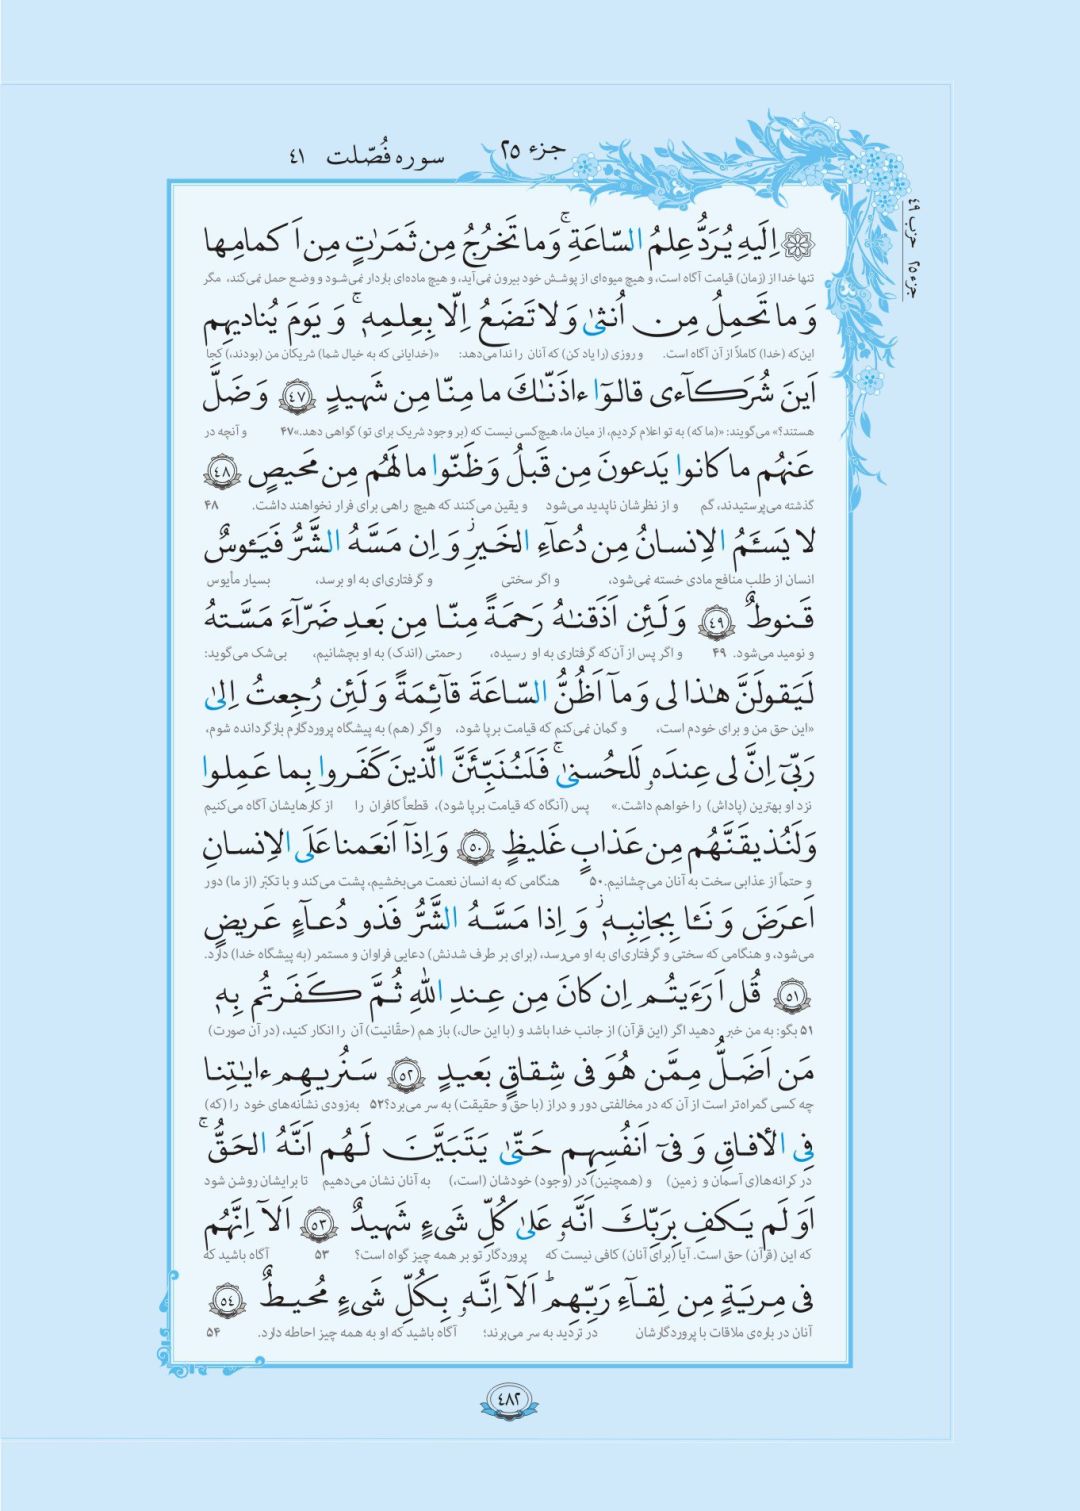 جزء ۲۵
سوره فُصّلت ٤١
جزء ۲۵ حزب ٤٩
اِلَیهِ یُرَدُّ عِلمُ السّاعَةِ ۚ وَ ما تَخرُجُ مِن ثَمَرٰتٍ مِن اَکمامِها
تنها خدا از (زمان) قیامت آگاه است، و هیچ میوه‌ای از پوشش خود بیرون نمی‌آید، و هیچ ماده‌ای باردار نمی‌شود و وضع حمل نمی‌کند، مگر
وَ ما تَحمِلُ مِن اُنثیٰ وَ لا تَضَعُ اِلّا بِعِلمِهٖ ۚ وَ یَومَ یُنادیهِم
این‌که (خدا) کاملاً از آن آگاه است. و روزی (را یاد کن) که آنان را ندا می‌دهد: «(خدایانی که به خیال شما) شریکان من (بودند،) کجا
اَینَ شُرَکآءی قالوٓا ءاذَنّٰكَ ما مِنّا مِن شَهیدٍ ٤٧ وَ ضَلَّ
هستند؟» می‌گویند: «(ما که) به تو اعلام کردیم، از میان ما، هیچ‌کسی نیست که (بر وجود شریک برای تو) گواهی دهد.» ۴۷ و آنچه در
عَنهُم ما کانوا یَدعونَ مِن قَبلُ وَ ظَنّوا ما لَهُم مِن مَحیصٍ ٤٨
گذشته می‌پرستیدند، گم و از نظرشان ناپدید می‌شود و یقین می‌کنند که هیچ راهی برای فرار نخواهند داشت. ۴۸
لا یَسئَمُ الاِنسانُ مِن دُعآءِ الخَیرِ ۡ وَ اِن مَسَّهُ الشَّرُّ فَیَئوسٌ
انسان از طلب منافع مادی خسته نمی‌شود، و اگر سختی و گرفتاری‌ای به او برسد، بسیار مأیوس
قَنوطٌ ٤٩ وَ لَئِن اَذَقنٰهُ رَحمَةً مِنّا مِن بَعدِ ضَرّآءَ مَسَّتهُ
و نومید می‌شود. ۴۹ و اگر پس از آن‌که گرفتاری به او رسیده، رحمتی (اندک) به او بچشانیم، بی‌شک می‌گوید:
لَیَقولَنَّ هٰذا لی وَ ماۤ اَظُنُّ السّاعَةَ قآئِمَةً وَ لَئِن رُجِعتُ اِلیٰ
«این حق من و برای خودم است، و گمان نمی‌کنم که قیامت برپا شود، و اگر (هم) به پیشگاه پروردگارم بازگردانده شوم،
رَبّیۤ اِنَّ لی عِندَهٗ لَلحُسنیٰ ۚ فَلَنُنَبِّئَنَّ الَّذینَ کَفَروا بِما عَمِلوا
نزد او بهترین (پاداش) را خواهم داشت.» پس (آنگاه که قیامت برپا شود)، قطعاً کافران را از کارهایشان آگاه می‌کنیم
وَ لَنُذیقَنَّهُم مِن عَذابٍ غَلیظٍ ٥٠ وَ اِذاۤ اَنعَمنا عَلَی الاِنسانِ
و حتماً از عذابی سخت به آنان می‌چشانیم. ۵۰ هنگامی که به انسان نعمت می‌بخشیم، پشت می‌کند و با تکبّر (از ما) دور
اَعرَضَ وَ نَـٔا بِجانِبِهٖ ۡ وَ اِذا مَسَّهُ الشَّرُّ فَذو دُعآءٍ عَریضٍ
می‌شود، و هنگامی که سختی و گرفتاری‌ای به او می‌رسد، (برای بر طرف شدنش) دعایی فراوان و مستمر (به پیشگاه خدا) دارد.
٥١ قُل اَرَءَیتُم اِن کانَ مِن عِندِ اللهِ ثُمَّ کَفَرتُم بِهٖ
۵۱ بگو: به من خبر دهید اگر (این قرآن) از جانب خدا باشد و (با این حال،) باز هم (حقّانیت) آن را انکار کنید، (در آن صورت)
مَن اَضَلُّ مِمَّن هُوَ فی شِقاقٍ بَعیدٍ ٥٢ سَنُریهِم ءایٰتِنا
چه کسی گمراه‌تر است از آن که در مخالفتی دور و دراز (با حق و حقیقت) به سر می‌برد؟ ۵۲ به‌زودی نشانه‌های خود را (که)
فِی الأفاقِ وَ فیۤ اَنفُسِهِم حَتّیٰ یَتَبَیَّنَ لَهُم اَنَّهُ الحَقُّ ۚ
در کرانه‌ها(ی آسمان و زمین) و (همچنین) در (وجود) خودشان (است،) به آنان نشان می‌دهیم تا برایشان روشن شود
اَوَ لَم یَکفِ بِرَبِّكَ اَنَّهٗ عَلیٰ کُلِّ شَیءٍ شَهیدٌ ٥٣ اَلاۤ اِنَّهُم
که این (قرآن) حق است. آیا (برای آنان) کافی نیست که پروردگار تو بر همه چیز گواه است؟ ۵۳ آگاه باشید که
فی مِریَةٍ مِن لِقآءِ رَبِّهِم ؕ اَلاۤ اِنَّهٗ بِکُلِّ شَیءٍ مُحیطٌ ٥٤
آنان در باره‌ی ملاقات با پروردگارشان در تردید به سر می‌برند؛ آگاه باشید که او به همه چیز احاطه دارد. ۵۴
٤٨٢